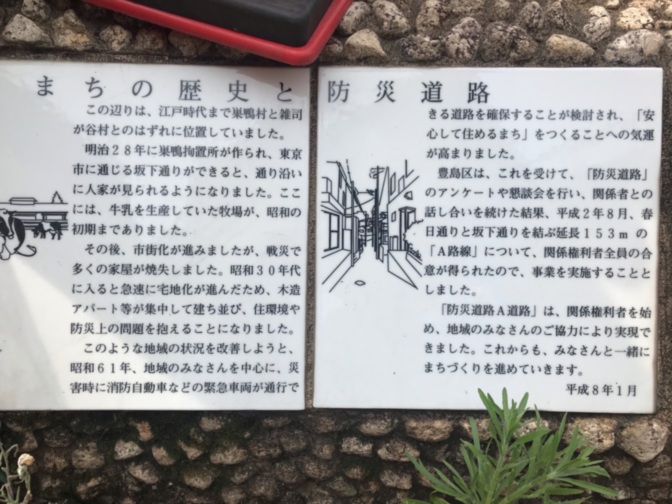 まちの歴史と防災道路
この辺りは、江戸時代まで巣鴨村と雑司
が谷村とのはずれに位置していました。
明治28年に巣鴨拘置所が作られ、東京
市に通じる坂下通りができると、通り沿い
に人家が見られるようになりました。ここ
には、牛乳を生産していた牧場が、昭和の
初期までありました。
その後、市街化が進みましたが、戦災で
多くの家屋が焼失しました。昭和30年代
に入ると急速に宅地化が進んだため、木造
アパート等が集中して建ち並び、住環境や
防災上の問題を抱えることになりました。
このような地域の状況を改善しようと、
昭和61年、地域のみなさんを中心に、災
害時に消防自動車などの緊急車両が通行で
きる道路を確保することが検討され、「安
心して住めるまち」をつくることへの気運
が高まりました。
豊島区は、これを受けて、「防災道路」
のアンケートや懇談会を行い、関係者との
話し合いを続けた結果、平成2年8月、春
日通りと坂下通りを結ぶ延長153mの
「A路線」について、関係権利者全員の合
意が得られたので、事業を実施することと
しました。
「防災道路A道路」は、関係権利者を始
め、地域のみなさんのご協力により実現で
きました。これからも、みなさんと一緒に
まちづくりを進めていきます。
平成8年1月